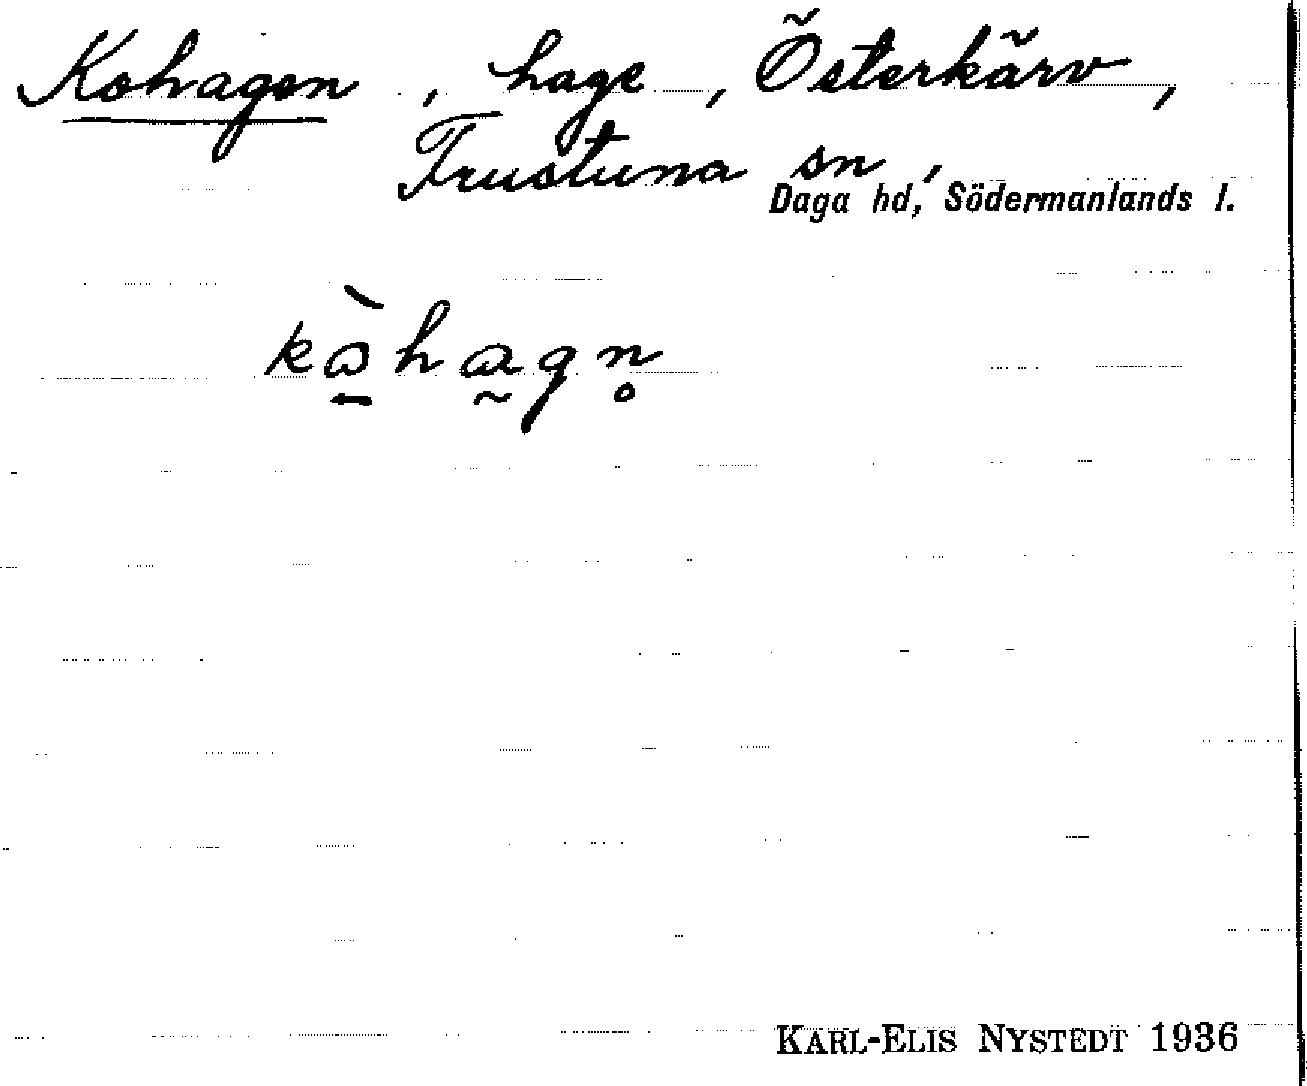 Kohagen, hage, Österkärv,
Frustuna sn,
Daga hd, Södermanlands l.
kàhagn̥
KARL-ELIS NYSTEDT 1936